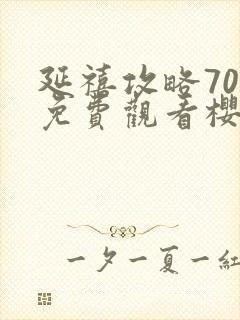 延禧攻略70
免費觀看櫻
一夕一夏一紅